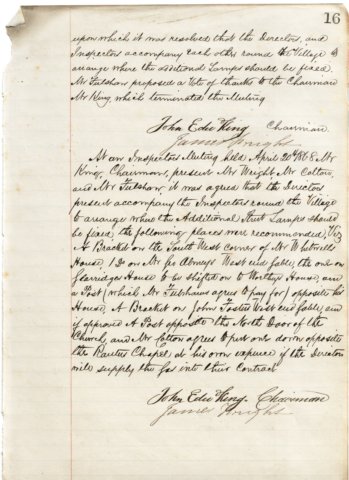 16
upon which it was resolved that the Directors, and
Inspectors accompany each other round the Village to
arrange where the additional Lamps should be fixed.
Mr Fulshaw proposed a Vote of thanks to the Chairman
Mr King which terminated the Meeting
John Edw King Chairman
James Wright
At an Inspectors Meeting held April 20th 1868 Mr
King, Chairman, present Mr Wright Mr Cotton,
and Mr Fulshaw, it was agreed that the Directors
present accompany the Inspectors round the Village
to arrange where the Additional Street Lamps should
be fixed, the following places were recommended, Viz
A Bracket on the South West Corner of Mr W
House, 1 Do on Mr West end Gable, the one on
House to be shifted on to House, and
a Post (which Mr Fulshaw agrees to pay for) opposite his
House, A Bracket on John Fosters West end Gable, and
if approved A Post opposite the North Door of the
Church, and Mr Cotton agrees to put one down opposite
the Chapel at his own expence if the Directors
will supply the Gas into their Contract
John Edw King. Chairman
James Wright